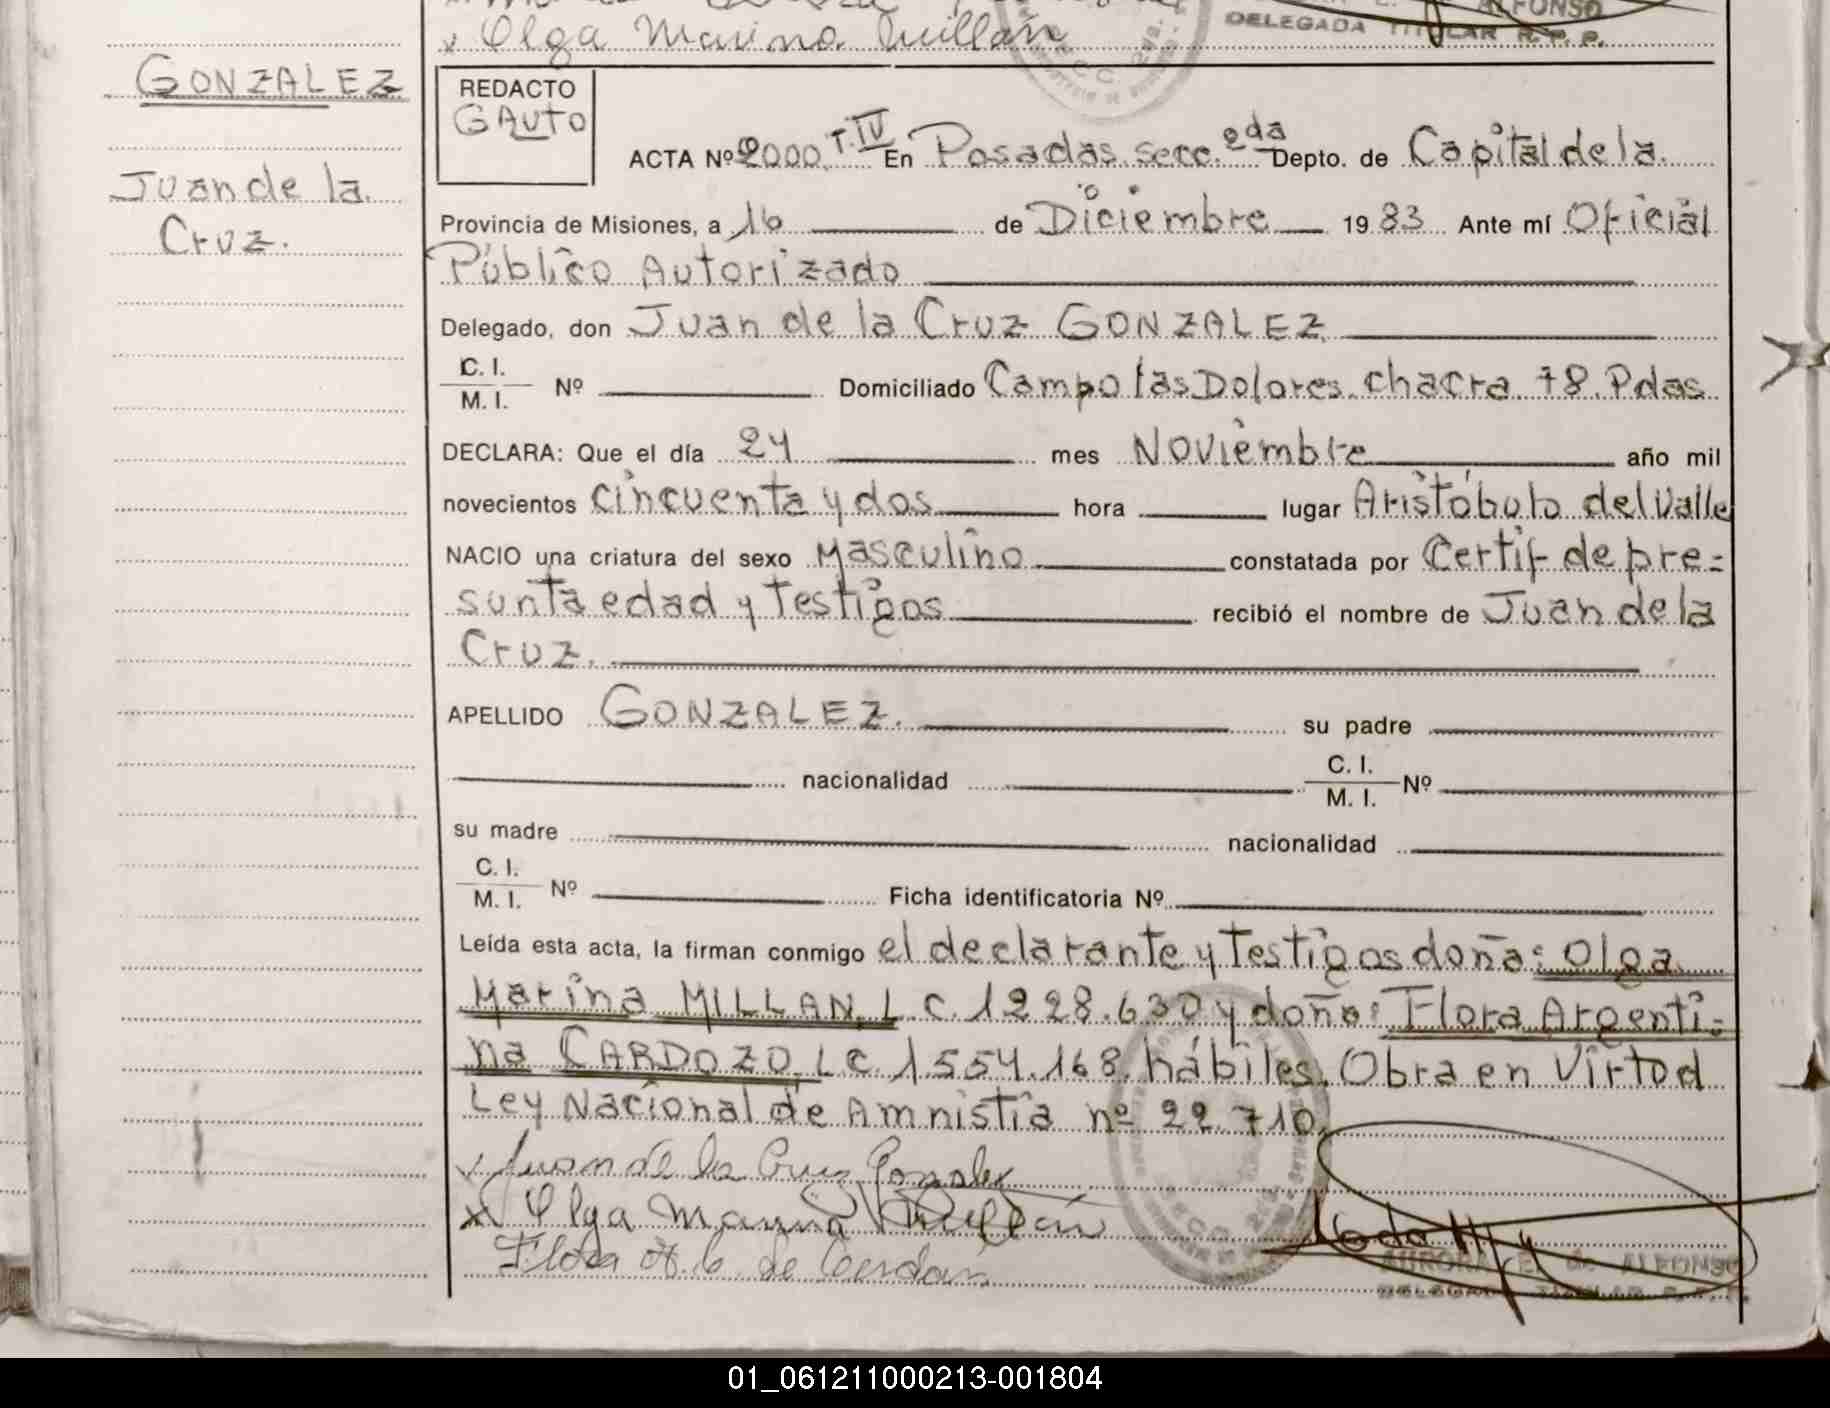 Olga Marina Millán
ALFONSO
DELEGADA TITULAR R. P. P.
GONZALEZ
Juan de la
Cruz.
REDACTO
GAUTO
ACTA Nº 2000 T. IV En Posadas secc. 2da Depto. de Capital de la
Provincia de Misiones, a 16 de Diciembre 1983 Ante mí Oficial
Público Autorizado
Delegado, don Juan de la Cruz GONZALEZ
C. I.
M. I. Nº Domiciliado Campo las Dolores. chacra. 78. Pdas
DECLARA: Que el día 24 mes Noviembre año mil
novecientos cincuenta y dos hora lugar Aristóbulo del Valle
NACIO una criatura del sexo Masculino constatada por Certif de pre=
sunta edad y testigos recibió el nombre de Juan de la
Cruz.
APELLIDO GONZALEZ. su padre
nacionalidad C. I.
M. I. Nº
su madre nacionalidad
C. I.
M. I. Nº Ficha identificatoria Nº
Leída esta acta, la firman conmigo el declarante y testigos doña: Olga
Marina MILLAN, L C. 1228.630 y doña: Flora Argenti=
na CARDOZO, L C. 1554.168. hábiles. Obra en Virtud
Ley Nacional de Amnistía nº 22.710.
x Juan de la Cruz Gonzalez
x Olga Marina Millán
Flora A. C. de
AURORA E. de ALFONSO
DELEGADA TITULAR R. P. P.
01_061211000213-001804